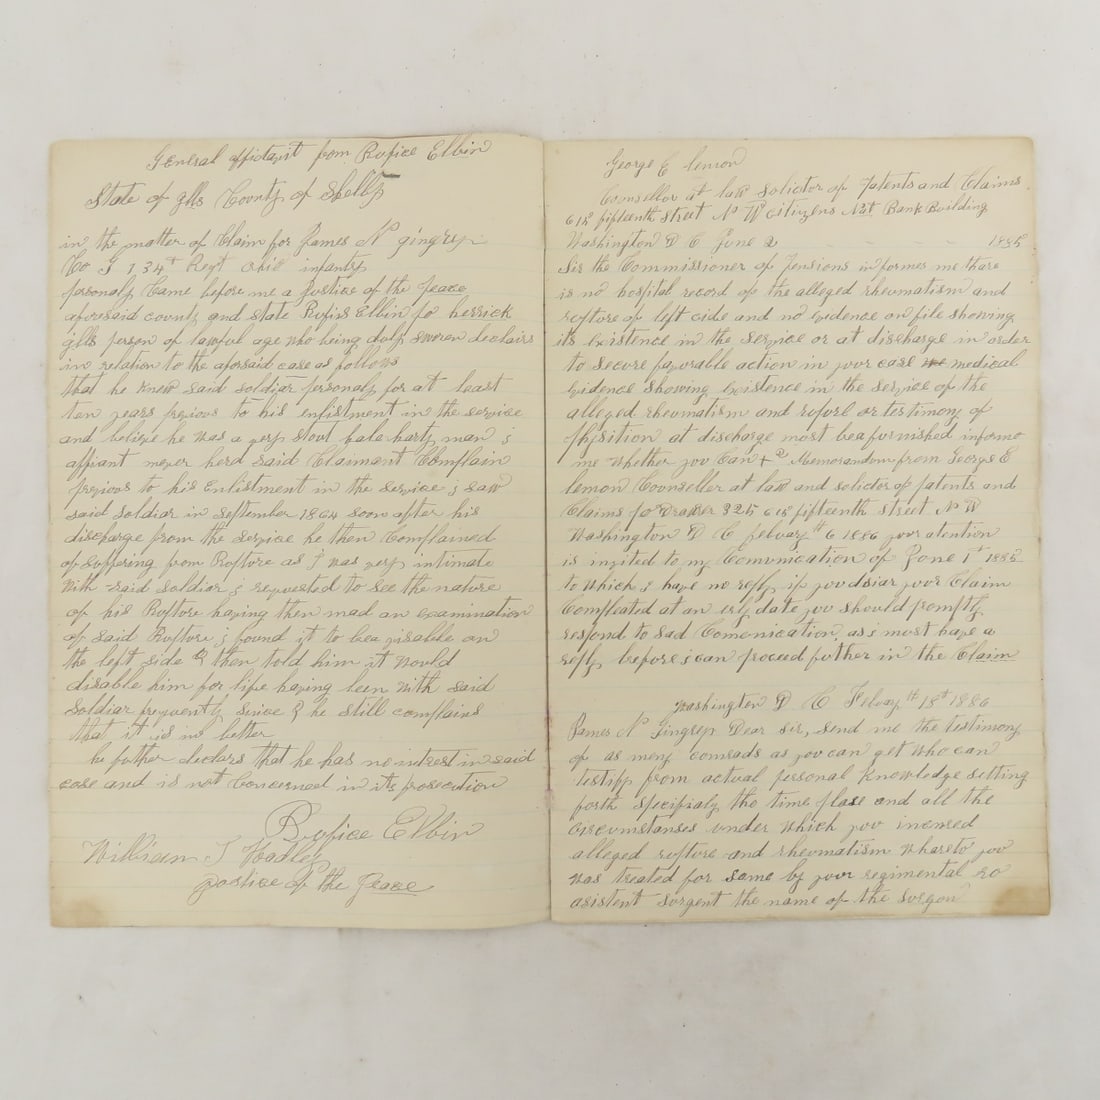 General affidavit from Rufice Elbin
State of Ills County of Shelby
in the matter of Claim for James N gingrey
Co G 134t Regt ohio infanty
personaly Came before me a justice of the peace
aforesaid county and state Rufus Elbin po herrick
ills person of lawful age who being duly sworen declairs
in relation to the aforsaid case as follows
that he knew said soldiar personaly for at least
ten years previous to his enlistment in the service
and believe he was a very stout hale harty man i
affiant never herd said Claimant Complain
previous to his Enlistment in the service i saw
said soldiar in September 1864 soon after his
discharge from the service he then Complained
of suffering from Rupture as i was very intimate
with said soldiar i requested to see the nature
of his Rupture having then mad an examination
of said Rupture i found it to be a visable on
the left side & then told him it would
disable him for life having been with said
Soldiar frequently since & he still complains
that it is no better
he futher declars that he has no intrest in said
case and is not Concerned in its prosecution
Rufice Elbin
William T Hadley
justice of the Peace
George E lemon
Councellor at law solicitor of Patents and Claims
615 fifteenth Street N W citizens Nat Bank Building
Washington D C June 2 - - - - 1885
Sir the Commissioner of Pensions informes me there
is no hospital record of the alleged rheumatism and
rupture of left side and no evidence on file showing
its existence in the service or at discharge in order
to secure favorable action in your case medical
evidence showing existence in the service of the
alleged rheumatism and or testimony of
physition at discharge most be a furnished informe
me whether you Can + c Memorandom from George E
lemon Counseller at law and solicitor of patents and
Claims po Drawer 325 615 fifteenth street N W
Washington D C 6 1886 your atention
is invited to my Comunication of June 1t 1885
to which i have no reply if you dsiar your Claim
Compleated at an erly date you should promptly
respond to sad Comonication as i most have a
reply before i can proceed futher in the Claim
Washington D C 18t 1886
James N Gingrey Dear sir, send me the testimony
of as meny comrads as you can get who can
testify from actual personal knowledge setting
forth specificaly the time place and all the
circumstanses under which you incured
alleged rupture and rheumatism whareto you
was treated for same by your regimental ro
asistent surgent the name of the surgon